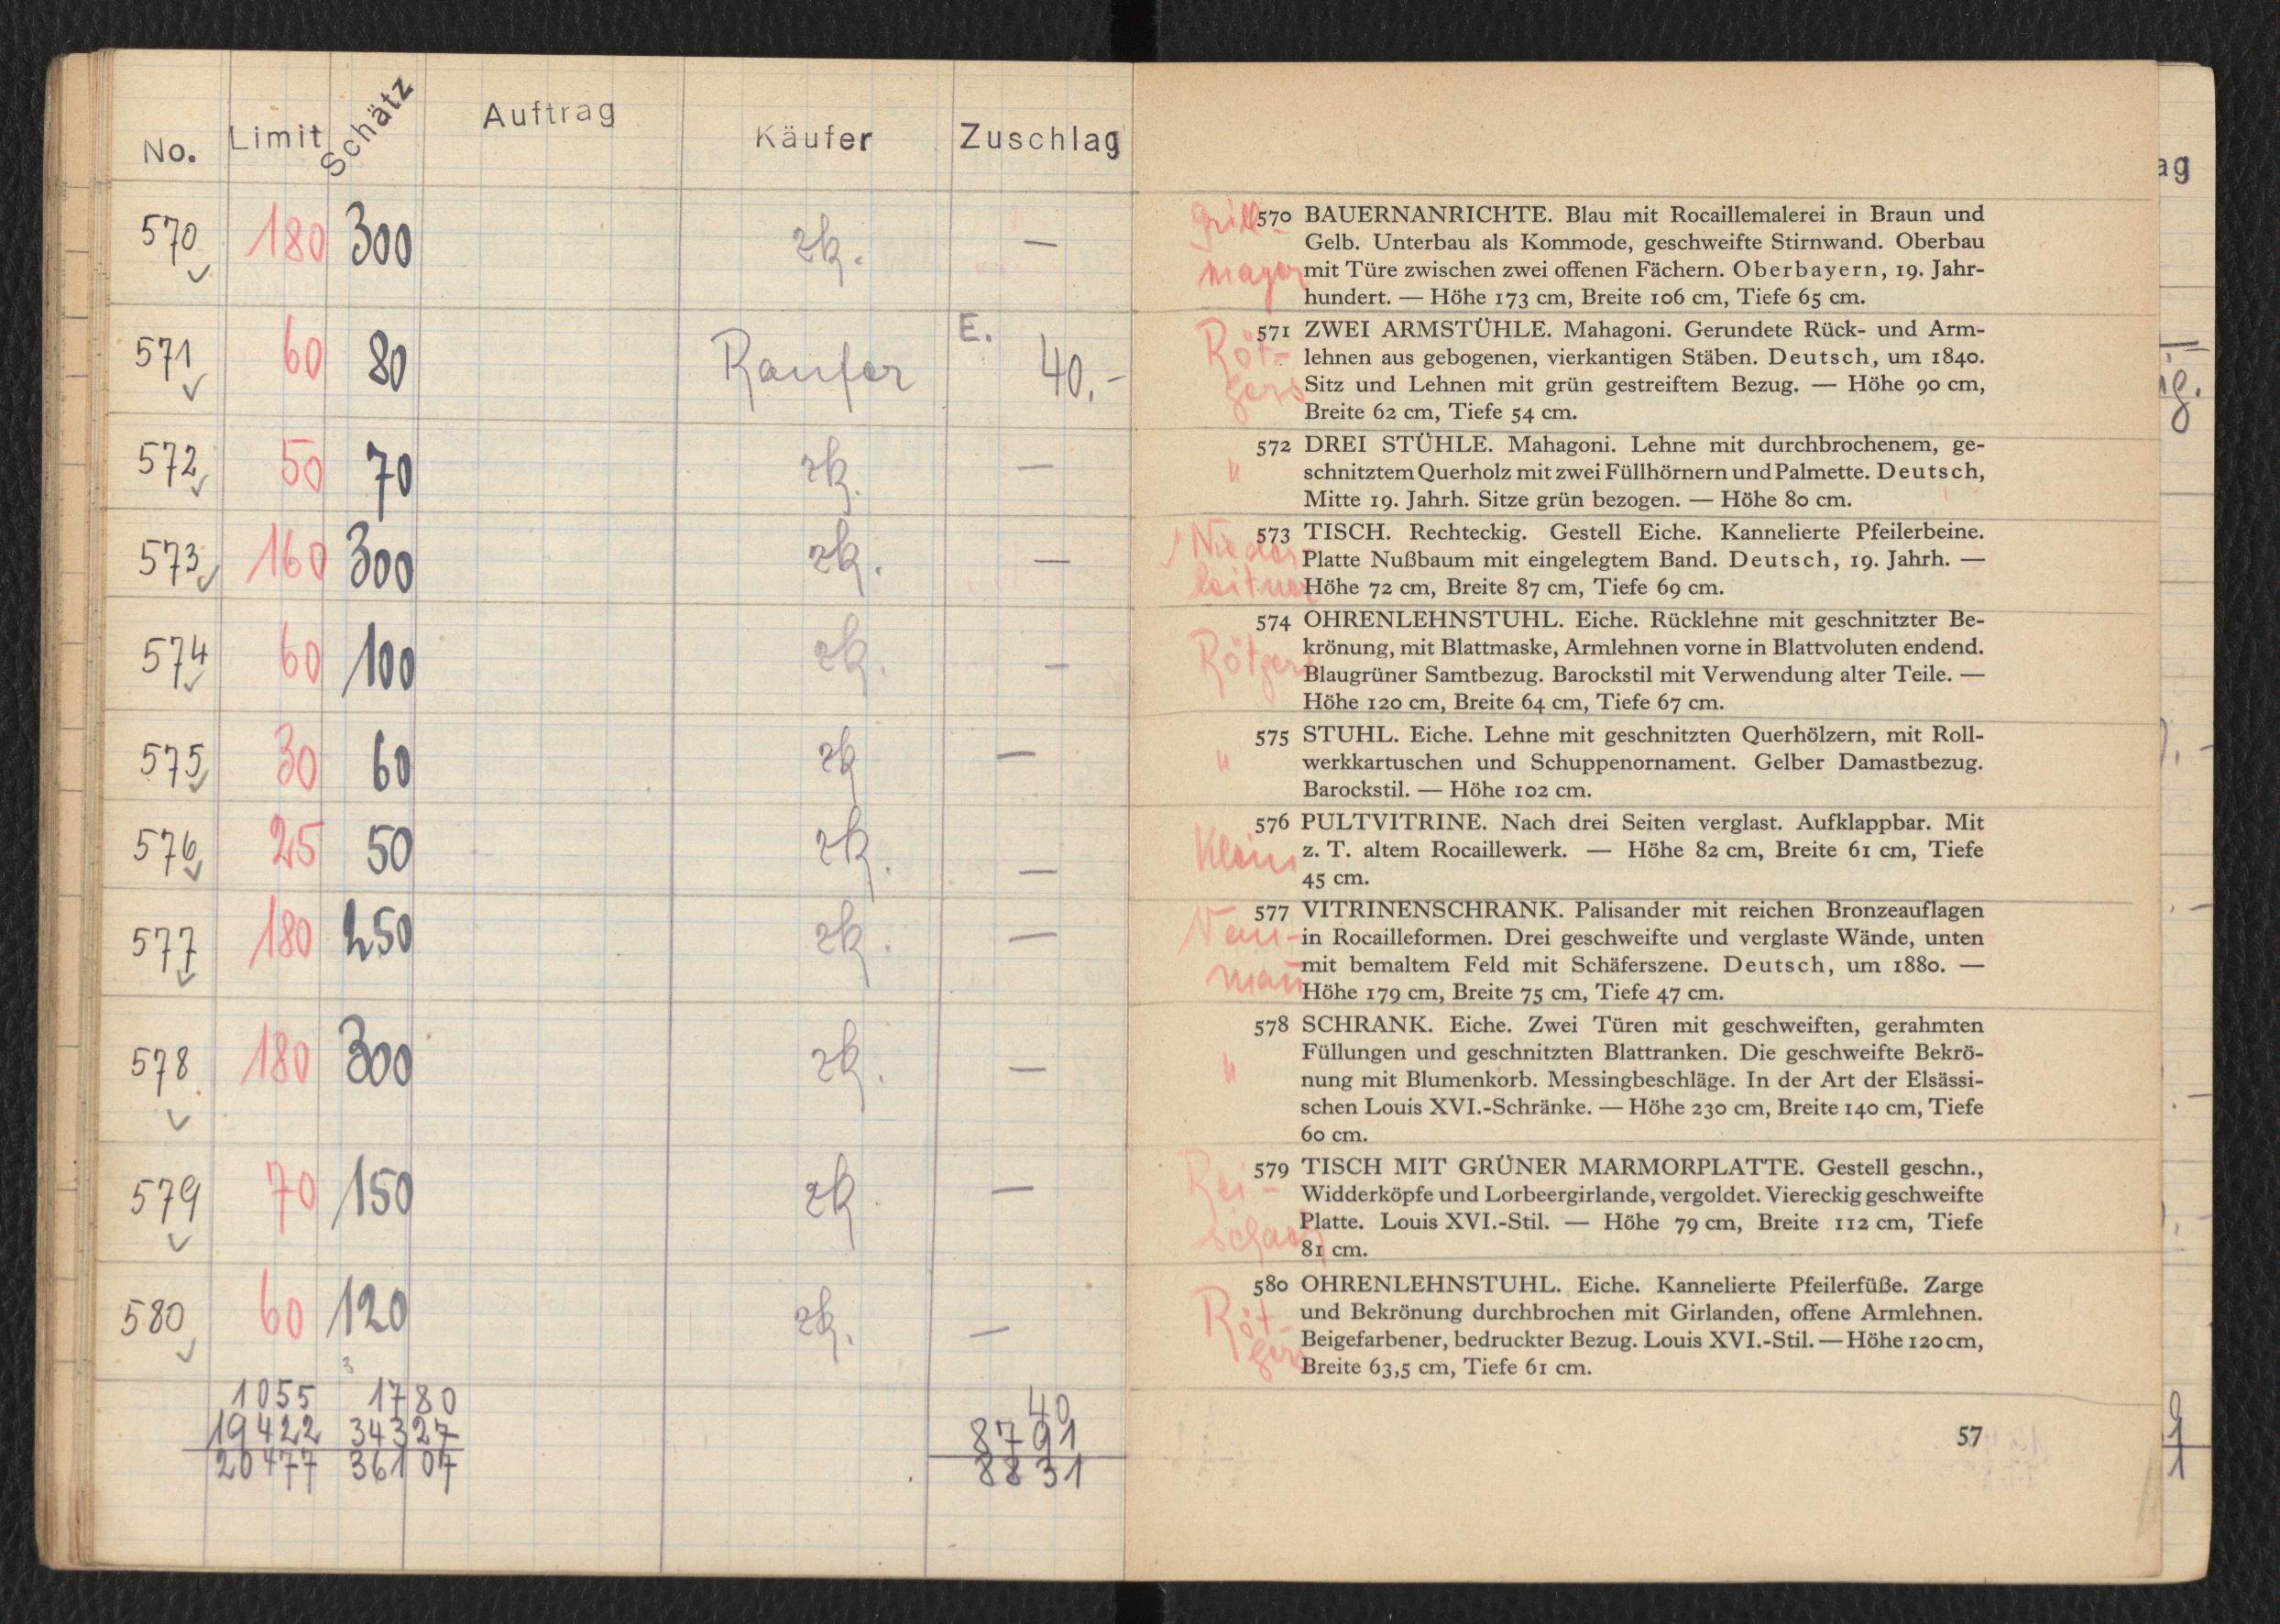 No. Limit Schätz Auftrag Käufer Zuschlag
570 180 300 zk. —
571 60 80 Raufer E. 40,-
572 50 70 zk. —
573 160 300 zk. —
574 60 100 zk. —
575 30 60 zk —
576 25 50 zk. —
577 180 250 zk. —
578 180 300 zk. —
579 70 150 zk. —
580 60 120 zk. —
3
1055 1780 40
19422 34327 8791
20477 36107 8831
Grill-
mayer
570 BAUERNANRICHTE. Blau mit Rocaillemalerei in Braun und
Gelb. Unterbau als Kommode, geschweifte Stirnwand. Oberbau
mit Türe zwischen zwei offenen Fächern. Oberbayern, 19. Jahr-
hundert. — Höhe 173 cm, Breite 106 cm, Tiefe 65 cm.
Röt-
gers
571 ZWEI ARMSTÜHLE. Mahagoni. Gerundete Rück- und Arm-
lehnen aus gebogenen, vierkantigen Stäben. Deutsch, um 1840.
Sitz und Lehnen mit grün gestreiftem Bezug. — Höhe 90 cm,
Breite 62 cm, Tiefe 54 cm.
"
572 DREI STÜHLE. Mahagoni. Lehne mit durchbrochenem, ge-
schnitztem Querholz mit zwei Füllhörnern und Palmette. Deutsch,
Mitte 19. Jahrh. Sitze grün bezogen. — Höhe 80 cm.
Nieder-
leitner
573 TISCH. Rechteckig. Gestell Eiche. Kannelierte Pfeilerbeine.
Platte Nußbaum mit eingelegtem Band. Deutsch, 19. Jahrh. —
Höhe 72 cm, Breite 87 cm, Tiefe 69 cm.
Rötgers
574 OHRENLEHNSTUHL. Eiche. Rücklehne mit geschnitzter Be-
krönung, mit Blattmaske, Armlehnen vorne in Blattvoluten endend.
Blaugrüner Samtbezug. Barockstil mit Verwendung alter Teile. —
Höhe 120 cm, Breite 64 cm, Tiefe 67 cm.
"
575 STUHL. Eiche. Lehne mit geschnitzten Querhölzern, mit Roll-
werkkartuschen und Schuppenornament. Gelber Damastbezug.
Barockstil. — Höhe 102 cm.
Klein
576 PULTVITRINE. Nach drei Seiten verglast. Aufklappbar. Mit
z. T. altem Rocaillewerk. — Höhe 82 cm, Breite 61 cm, Tiefe
45 cm.
Nau-
mañ
577 VITRINENSCHRANK. Palisander mit reichen Bronzeauflagen
in Rocailleformen. Drei geschweifte und verglaste Wände, unten
mit bemaltem Feld mit Schäferszene. Deutsch, um 1880. —
Höhe 179 cm, Breite 75 cm, Tiefe 47 cm.
"
578 SCHRANK. Eiche. Zwei Türen mit geschweiften, gerahmten
Füllungen und geschnitzten Blattranken. Die geschweifte Bekrö-
nung mit Blumenkorb. Messingbeschläge. In der Art der Elsässi-
schen Louis XVI.-Schränke. — Höhe 230 cm, Breite 140 cm, Tiefe
60 cm.
Rei-
schach
579 TISCH MIT GRÜNER MARMORPLATTE. Gestell geschn.,
Widderköpfe und Lorbeergirlande, vergoldet. Viereckig geschweifte
Platte. Louis XVI.-Stil. — Höhe 79 cm, Breite 112 cm, Tiefe
81 cm.
Röt-
gers
580 OHRENLEHNSTUHL. Eiche. Kannelierte Pfeilerfüße. Zarge
und Bekrönung durchbrochen mit Girlanden, offene Armlehnen.
Beigefarbener, bedruckter Bezug. Louis XVI.-Stil. — Höhe 120 cm,
Breite 63,5 cm, Tiefe 61 cm.
57
ag